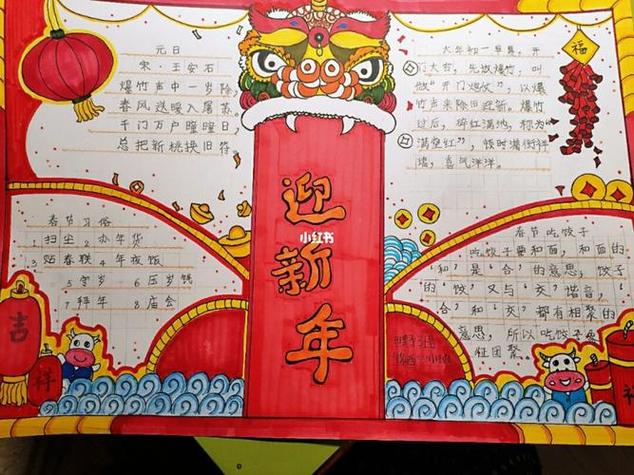 元日
宋·王安石
爆竹声中一岁除，
春风送暖入屠苏。
千门万户曈曈日，
总把新桃换旧符
大年初一早晨，开
门大吉，先放爆竹，叫
做“开门炮仗”，以爆
竹声来除旧迎新。爆竹
过后，碎红满地，称为
“满堂红”，顿时满街祥
瑞，喜气洋洋。
福
迎
新
年
小红书
春节习俗
1.扫尘 2 办年货
3.贴春联 4 年夜饭
5 守岁 6 压岁钱
7 拜年 8 庙会
春节吃饺子
吃饺子要和面，和面的
“和”是“合”的意思，饺子
的“饺”又与“交”谐音，“
合”和“交”都有相聚的
意思，所以吃饺子
团聚。
吉
祥